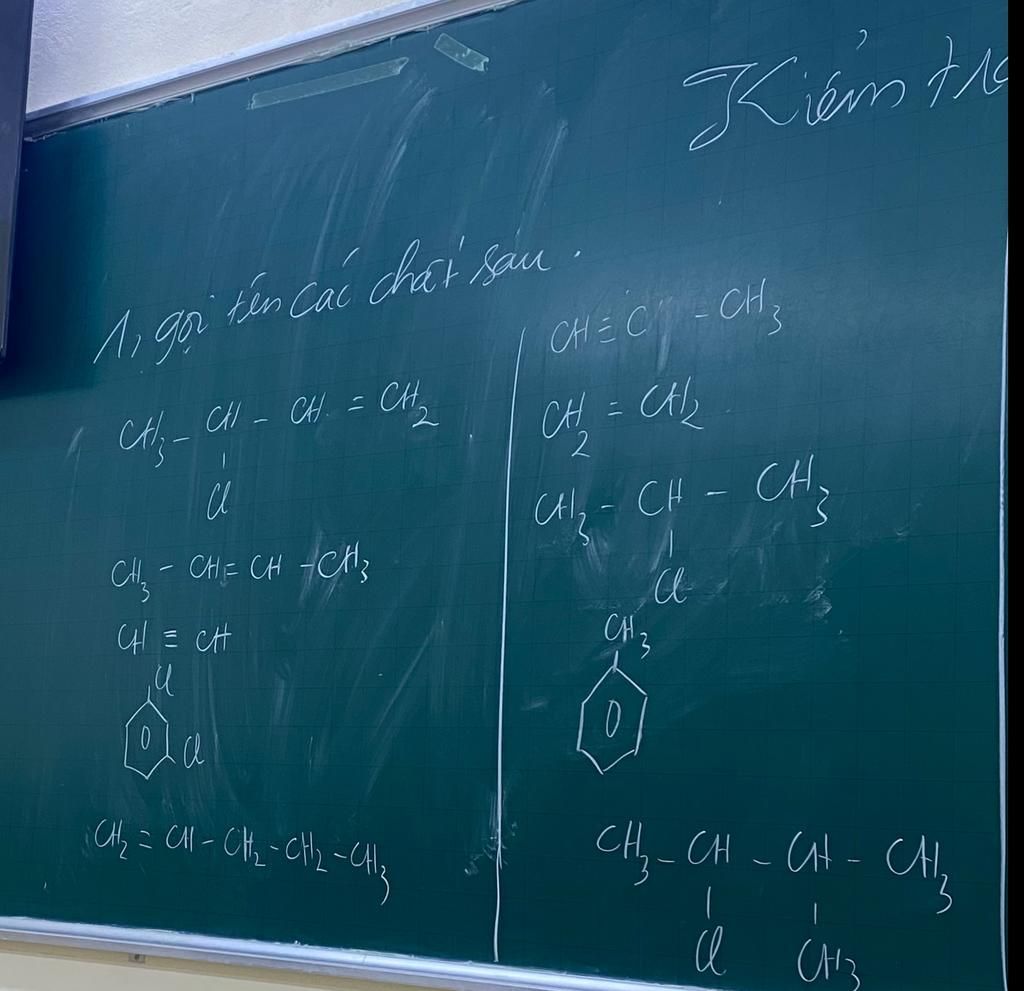 Kiểm tra
1, gọi tên các chất sau.
CH3 - CH - CH = CH2
Cl
CH3 - CH = CH - CH3
CH ≡ CH
Cl
Cl
CH2 = CH - CH2 - CH2 - CH3
CH ≡ C - CH3
CH2 = CH2
CH3 - CH - CH3
Cl
CH3
CH3 - CH - CH - CH3
Cl CH3